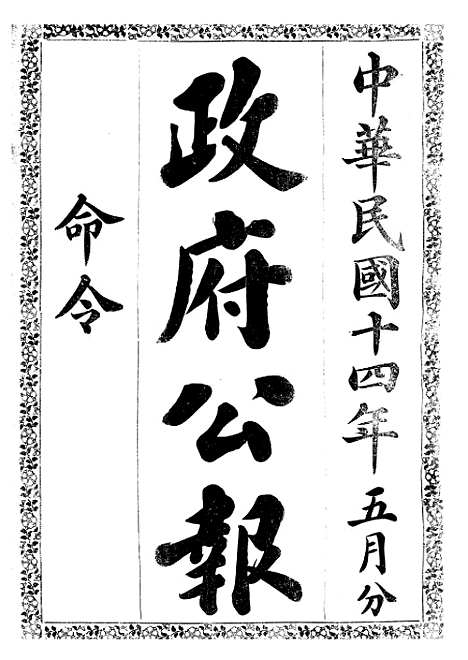 中華民國十四年五月分
政府公報
命令